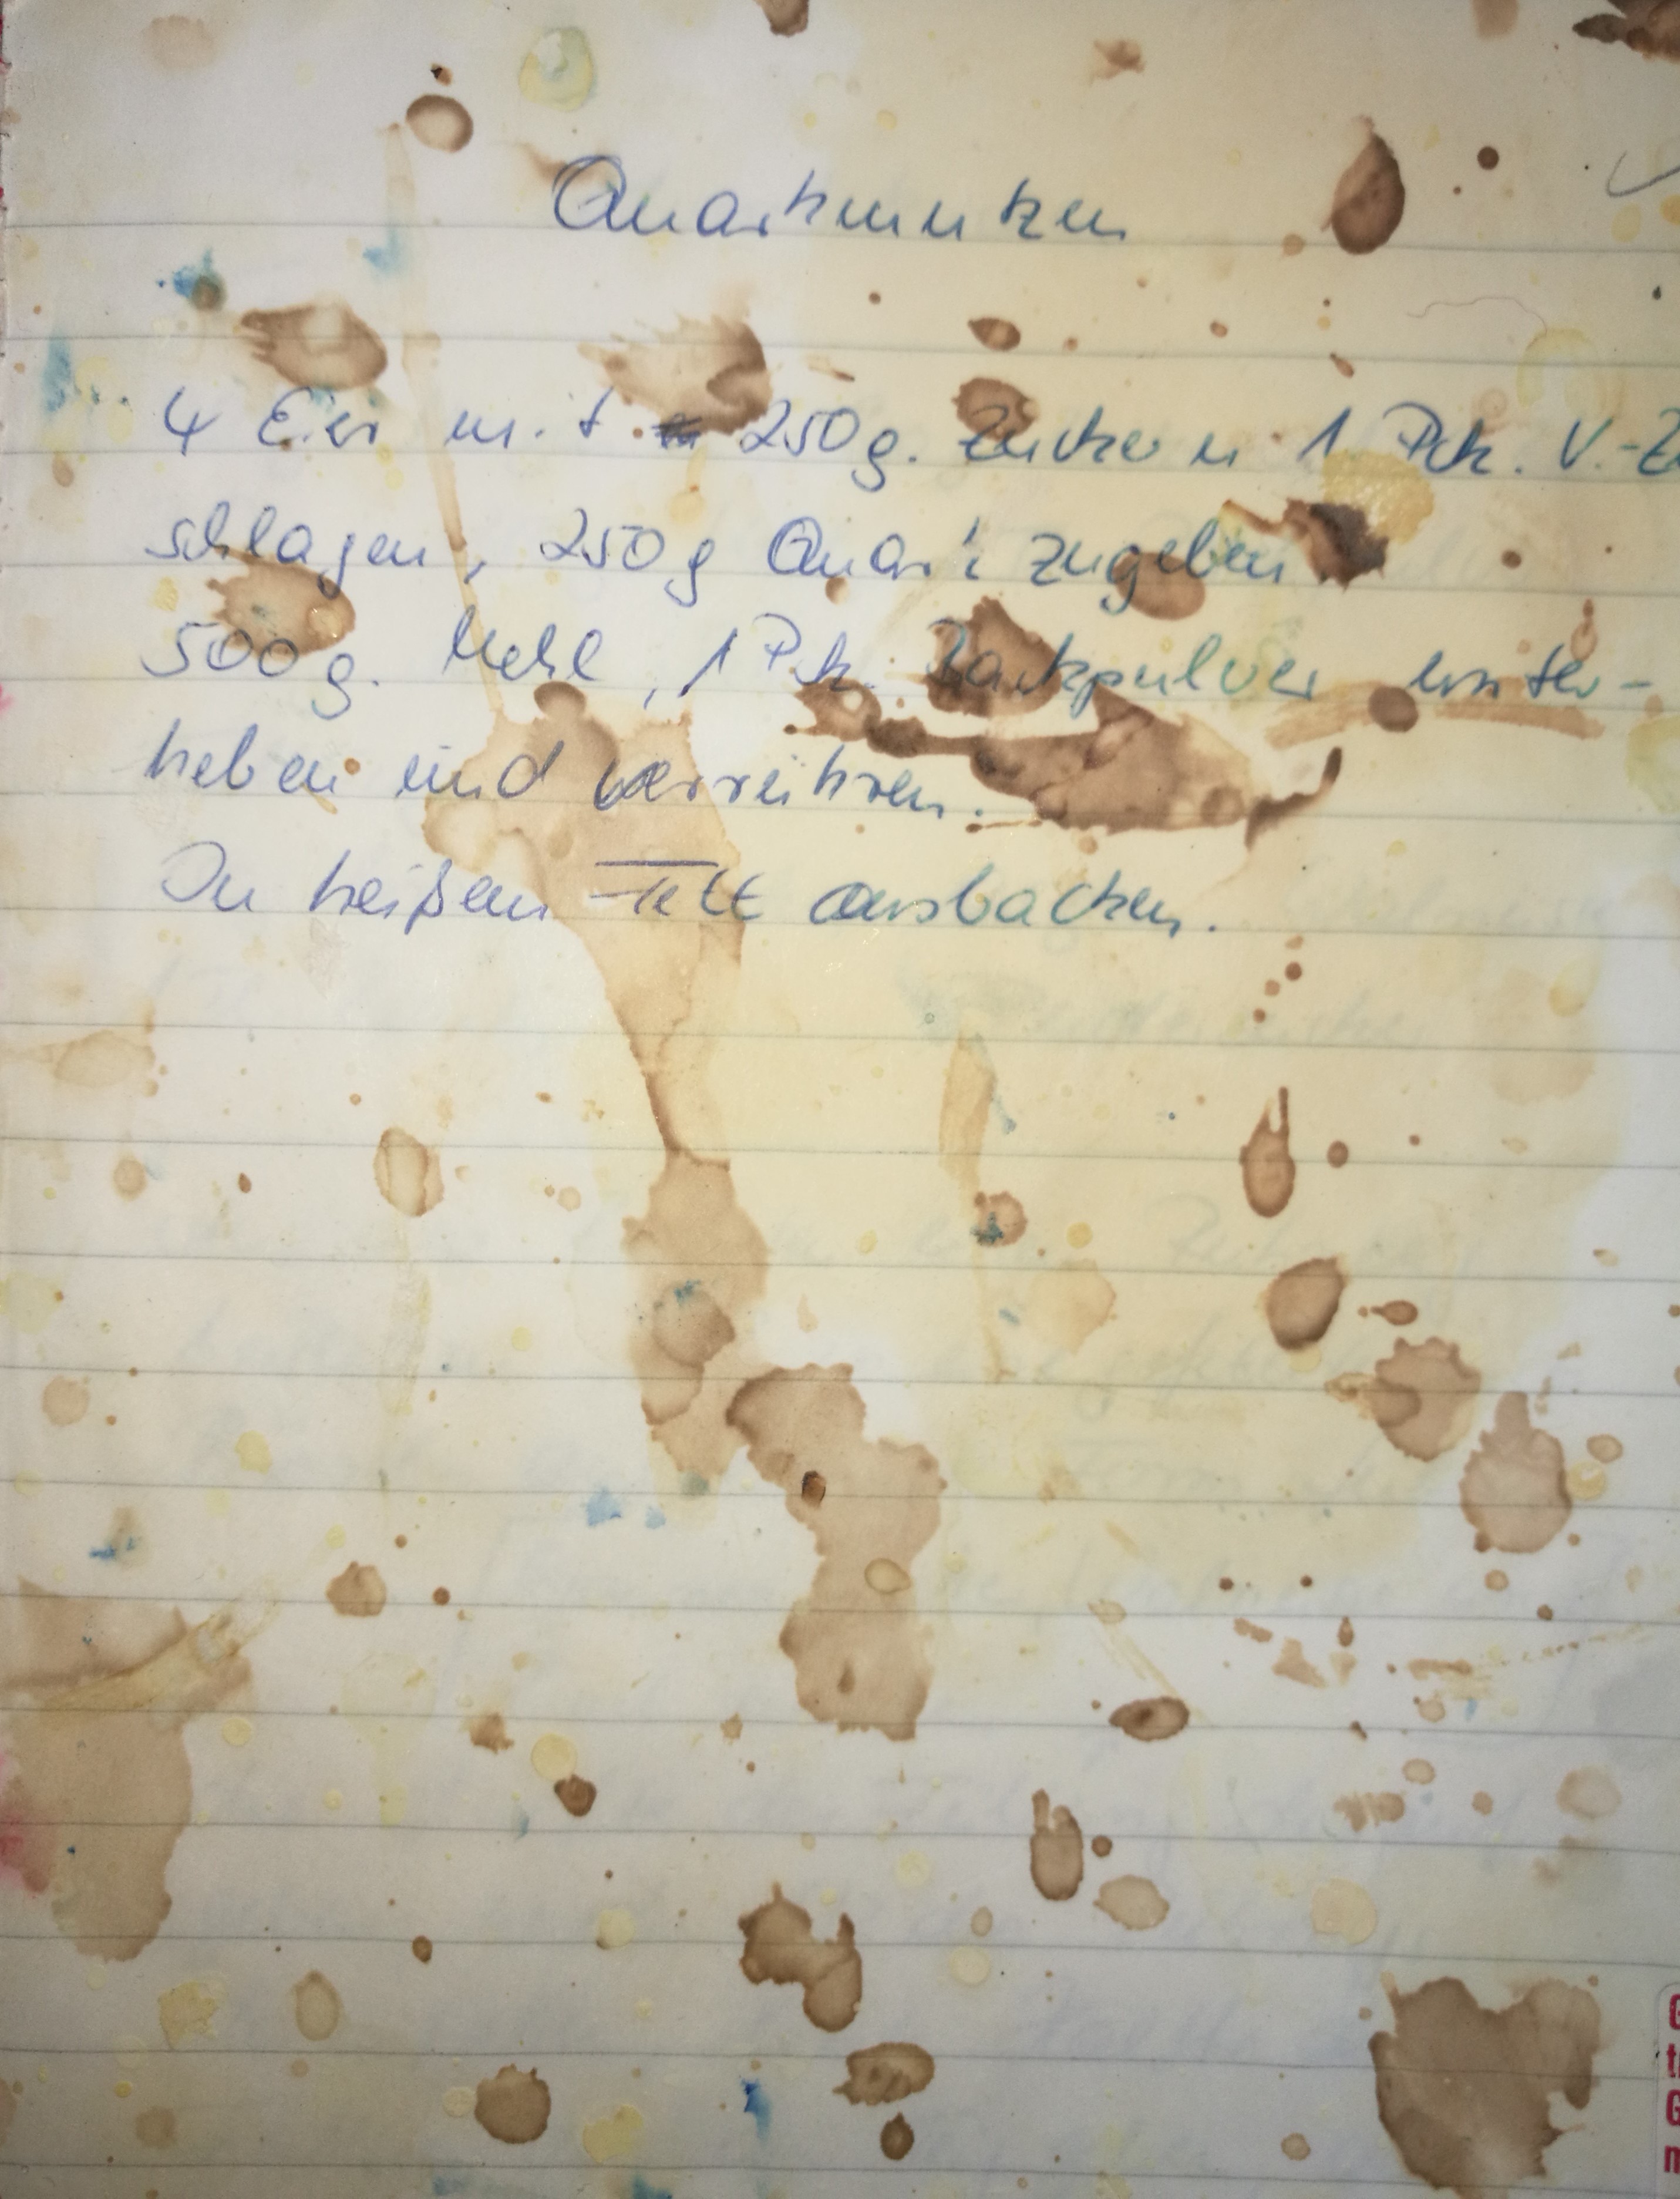 Quarkmutzen
4 Eier mit 250g. Zucker u 1 Pck. V.-Z
schlagen, 250g Quark zugeben.
500g. Mehl, 1 Pck. Backpulver unter-
heben und verrühren.
In heißem Fett ausbacken.